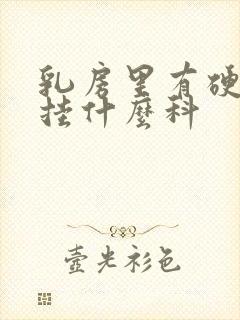 乳房里有硬
挂什麼科
壹光衫色